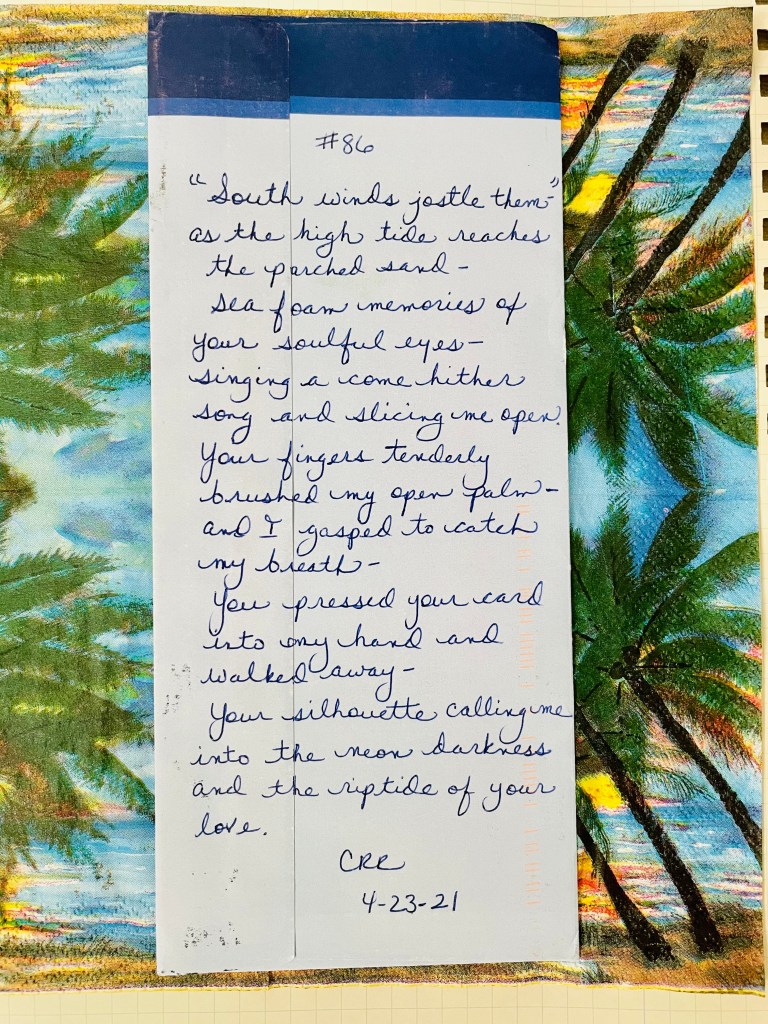 #86
"South winds jostle them"-
as the high tide reaches
the parched sand-
sea foam memories of
your soulful eyes-
singing a come hither
song and slicing me open.
Your fingers tenderly
brushed my open palm-
and I gasped to catch
my breath-
You pressed your card
into my hand and
walked away-
Your silhouette calling me
into the neon darkness
and the riptide of your
love.
CRR
4-23-21